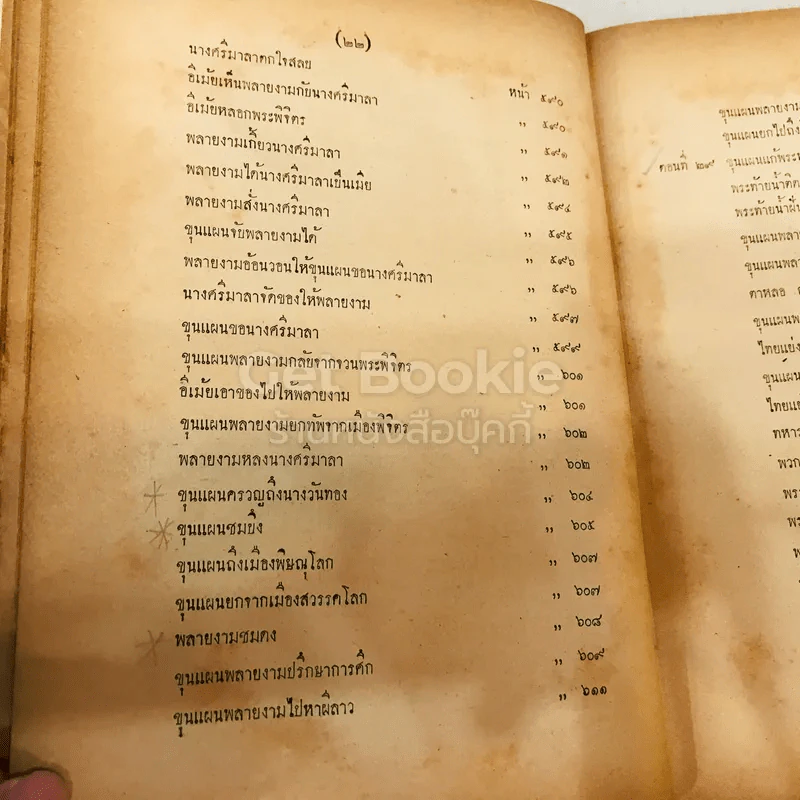 (๒๒)
นางศรีมาลาตกใจสลบ หน้า ๕๙๐
อีเม้ยเห็นพลายงามกับนางศรีมาลา ,, ๕๙๐
อีเม้ยหลอกพระพิจิตร ,, ๕๙๑
พลายงามเกี้ยวนางศรีมาลา ,, ๕๙๒
พลายงามได้นางศรีมาลาเป็นเมีย ,, ๕๙๔
พลายงามสั่งนางศรีมาลา ,, ๕๙๕
ขุนแผนจับพลายงามได้ ,, ๕๙๖
พลายงามอ้อนวอนให้ขุนแผนขอนางศรีมาลา ,, ๕๙๖
นางศรีมาลาจัดของให้พลายงาม ,, ๕๙๗
ขุนแผนขอนางศรีมาลา ,, ๕๙๙
ขุนแผนพลายงามกลับจากจวนพระพิจิตร ,, ๖๐๑
อีเม้ยเอาของไปให้พลายงาม ,, ๖๐๑
ขุนแผนพลายงามยกทัพจากเมืองพิจิตร ,, ๖๐๒
พลายงามหลงนางศรีมาลา ,, ๖๐๒
ขุนแผนครวญถึงนางวันทอง ,, ๖๐๔
ขุนแผนชมบึง ,, ๖๐๕
ขุนแผนถึงเมืองพิษณุโลก ,, ๖๐๗
ขุนแผนยกจากเมืองสวรรคโลก ,, ๖๐๗
พลายงามชมดง ,, ๖๐๘
ขุนแผนพลายงามปรึกษาการศึก ,, ๖๐๙
ขุนแผนพลายงามไปหาผีลาว ,, ๖๑๑
Get Bookie
ร้านหนังสือบุ๊คกี้
ขุนแผนพลายงาม
ขุนแผนยกไปถึง
ตอนที่ ๒๙ ขุนแผนแก้พระท
พระท้ายน้ำติด
พระท้ายน้ำฝัน
ขุนแผนพลาย
ขุนแผนพลา
ตาหลอ
ขุนแผนพ
ไทยแย่ง
ขุนแผน
ไทยแย
ทหาร
พวก
พระ
พร